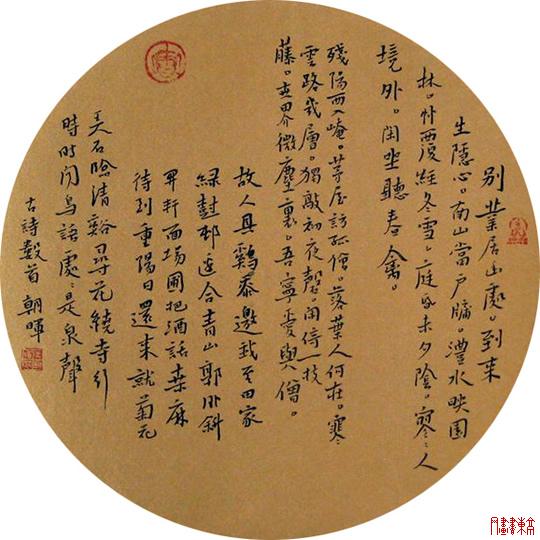 別業居幽處。到來
生隱心。南山當戶牖。灃水映園
林。竹覆經冬雪。庭昏未夕陰。寥々人
境外。閒坐聽春禽。
殘陽西入崦。茅屋訪孤僧。落葉人何在。寒
雲路幾層。獨敲初夜磬。閒倚一枝
藤。世界微塵裏。吾寧愛與僧。
故人具鷄黍邀我至田家
綠樹邨邊合青山郭外斜
開軒面場圃把酒話桑麻
待到重陽日還來就菊花
弄石臨清谿尋花繞寺行
時時聞鳥語處々是泉聲
古詩數首 朝暉